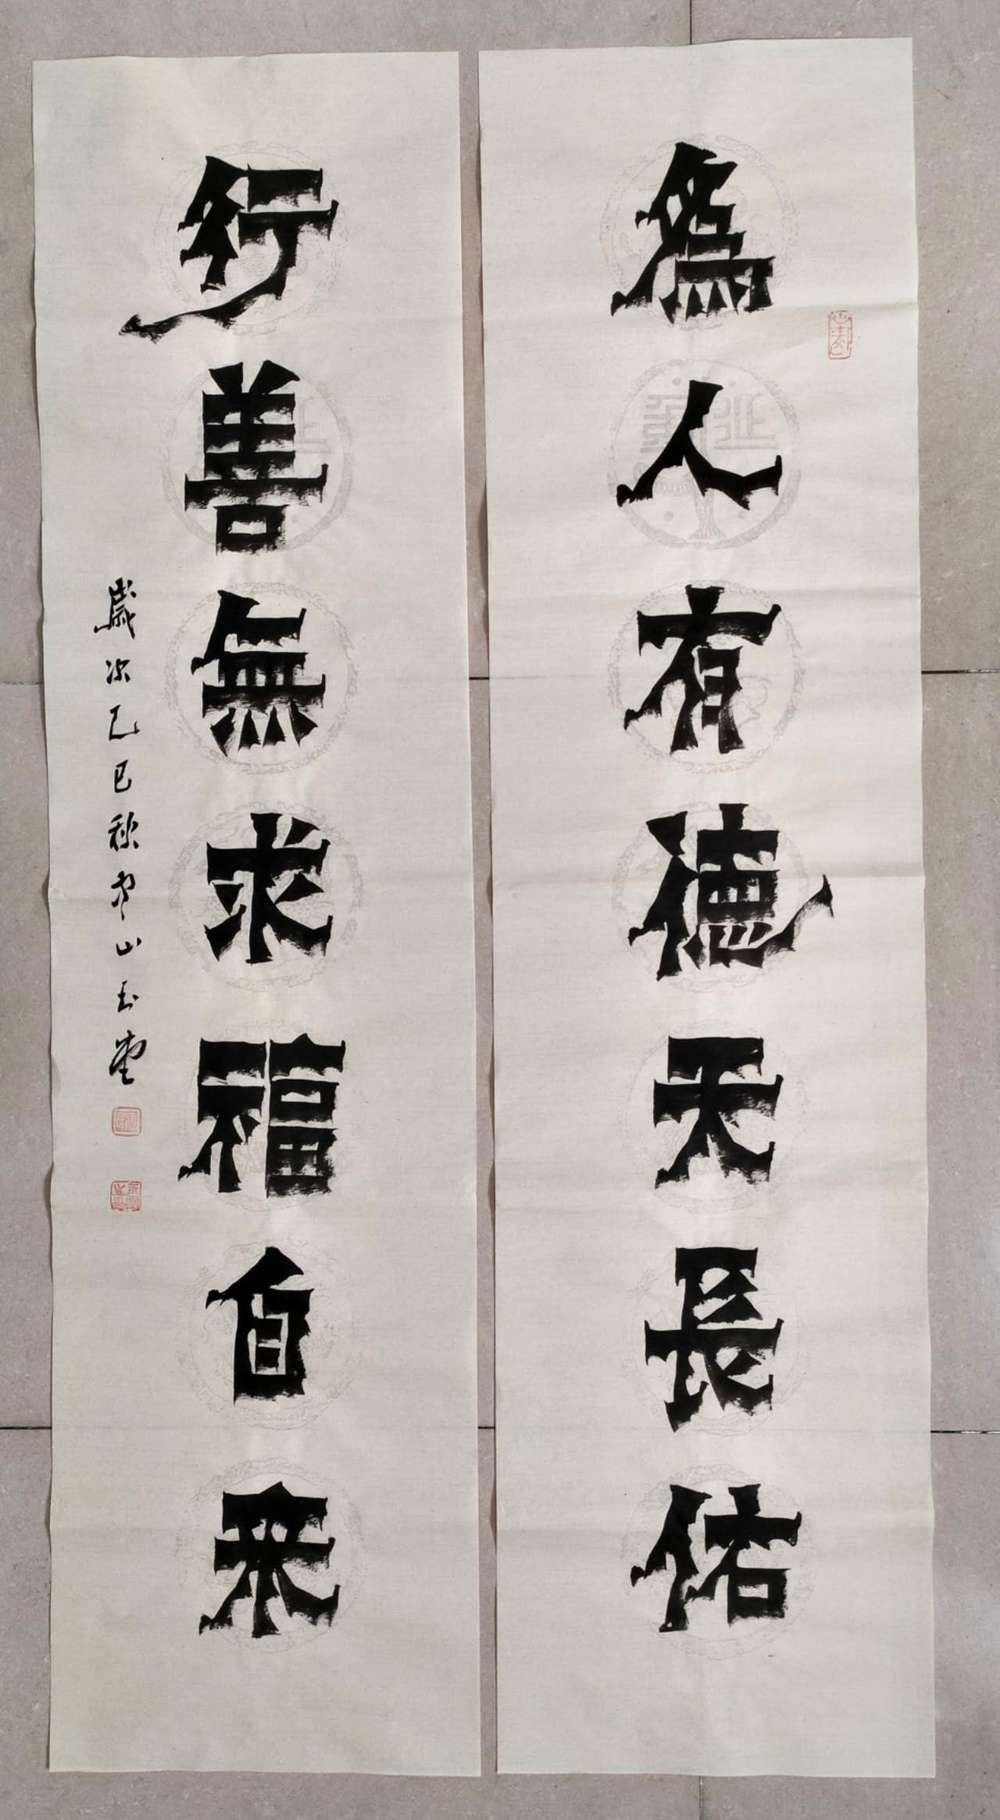 為人有德天長佑
行善無求福自來
歲次乙巳秋
山玉堂